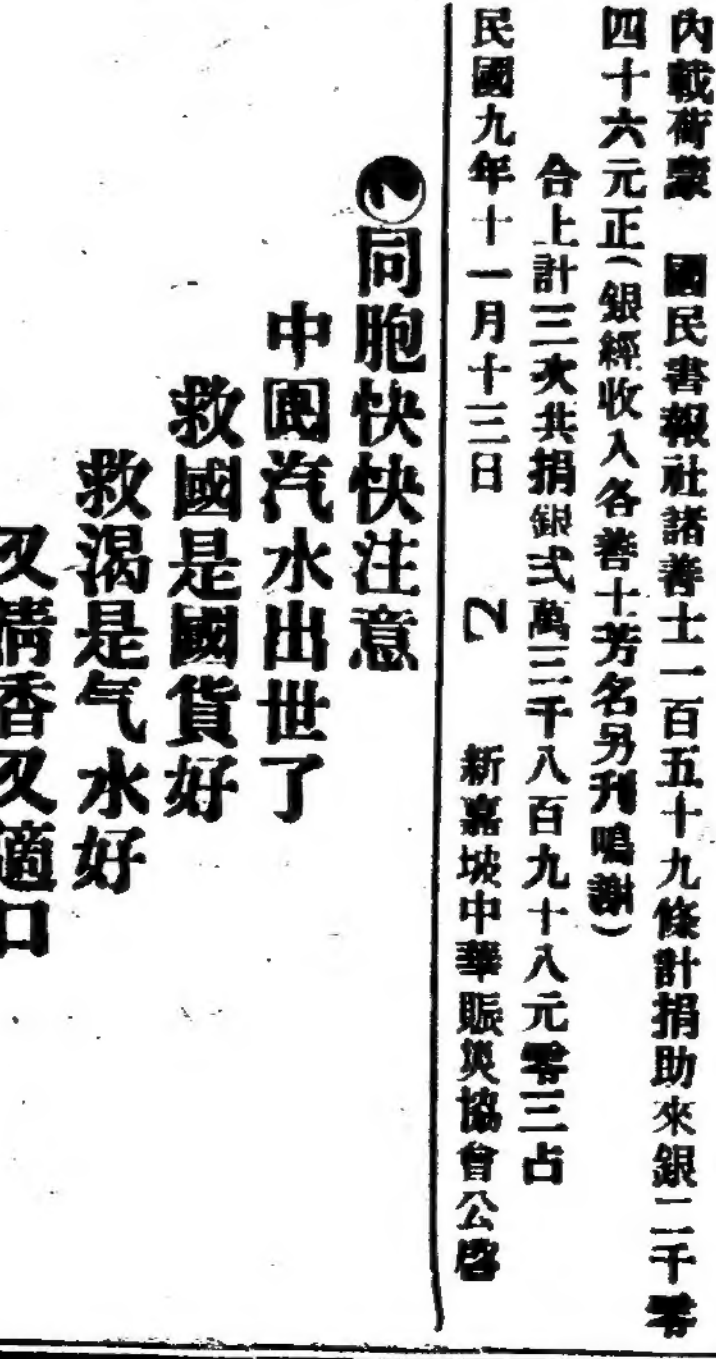 內載荷蒙 國民書報社諸善士一百五十九條計捐助來銀二千零
四十六元正(銀經收入各善士芳名另刋鳴謝)
合上計三次共捐銀弍萬三千八百九十八元零三占
民國九年十一月十三日 2 新嘉坡中華賑災協會公啓
同胞快快注意
中國汽水出世了
救國是國貨好
救渴是气水好
又清香又適口